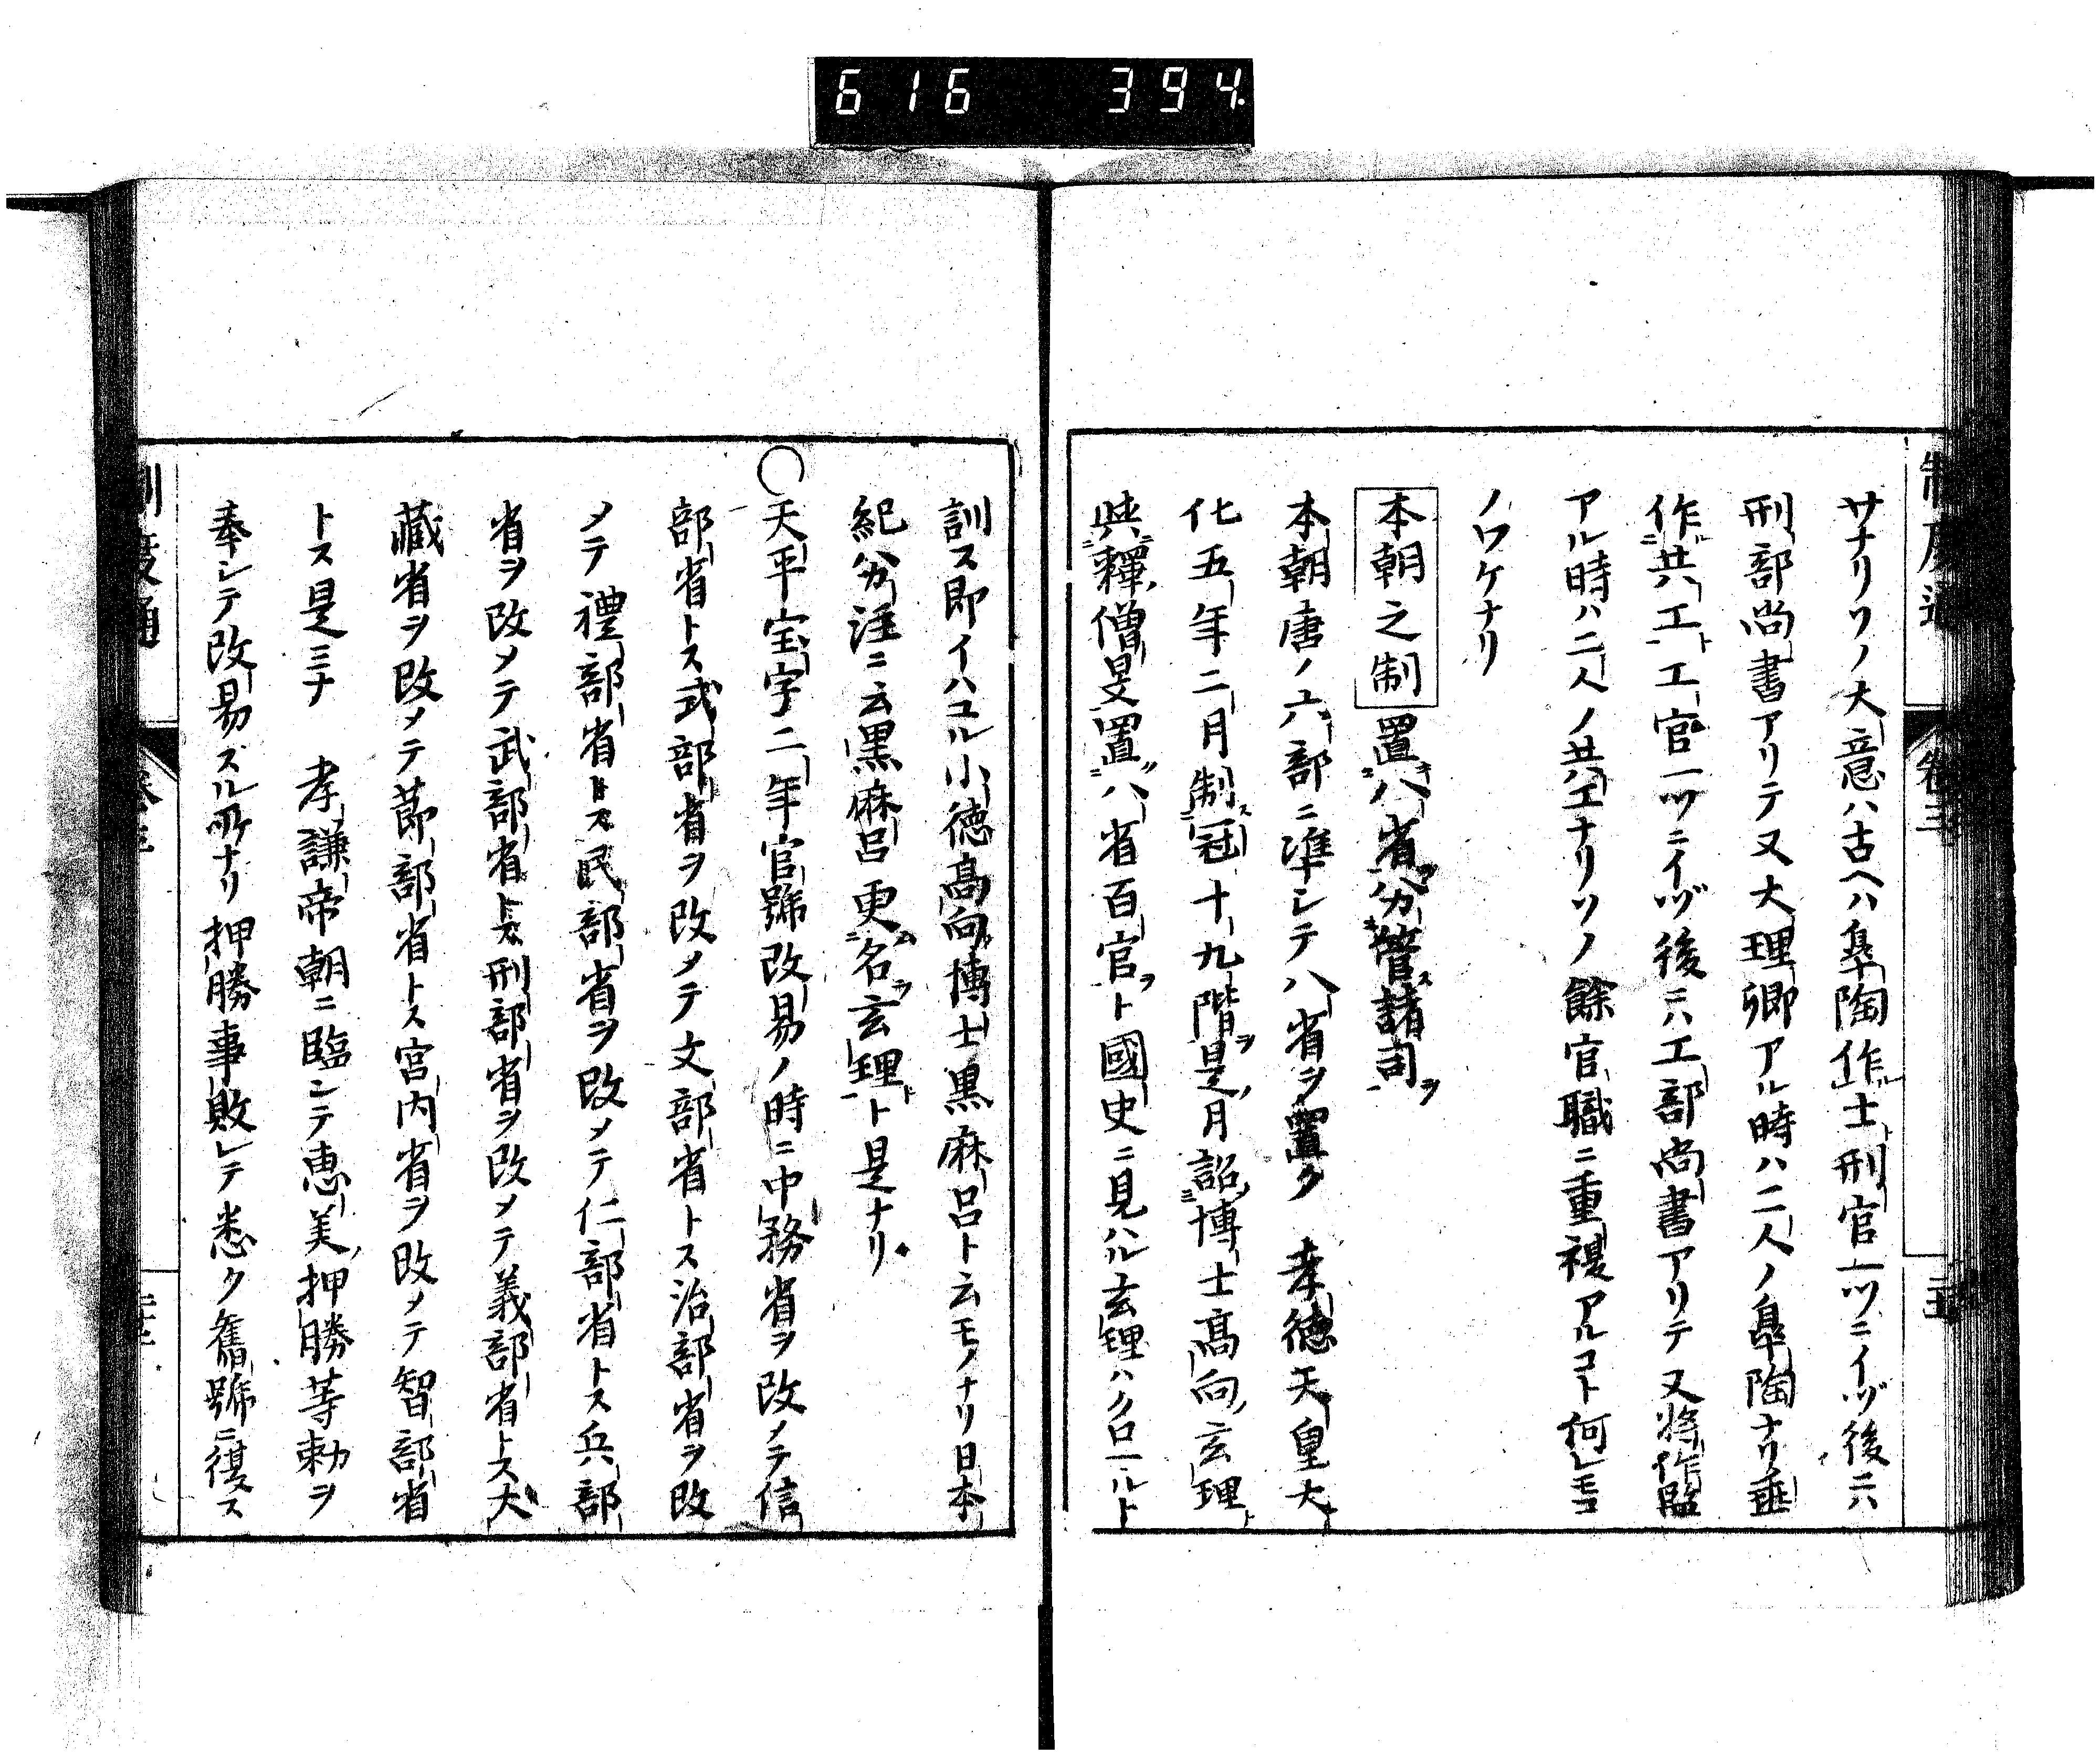 616 394
サナリソノ大意ハ古ヘハ皐陶作士刑官一ツニイヅ後ニハ
刑部尚書アリテ又大理卿アル時ハ二人ノ皐陶ナリ垂
作共工工官一ツニイヅ後ニハ工部尚書アリテ又將作監
アル時ハ二人ノ共工ナリソノ餘官職ニ重複アルコト何レモコ
ノワケナリ
本朝之制 置八省分管諸司ヲ
本朝唐ノ六部ニ準シテ八省ヲ置ク 孝徳天皇大
化五年二月制冠十九階ヲ是月詔博士髙向玄理ト
與釋僧旻置八省百官ヲト國史ニ見ハル玄理ハクロマルト
訓ス即イハユル小徳髙向博士黒麻呂ト云モノナリ日本
紀分注ニ云黒麻呂更名ヲ玄理ト是ナリ
○天平宝字二年官號改易ノ時ニ中務省ヲ改メテ信
部省トス式部省ヲ改メテ文部省トス治部省ヲ改
メテ禮部省トス民部省ヲ改メテ仁部省トス兵部
省ヲ改メテ武部省トス刑部省ヲ改メテ義部省トス大
藏省ヲ改メテ節部省トス宮内省ヲ改メテ智部省
トス是ミナ 孝謙帝朝ニ臨シテ恵美押勝等勅ヲ
奉シテ改易スル所ナリ押勝事敗レテ悉ク舊號ニ復ス